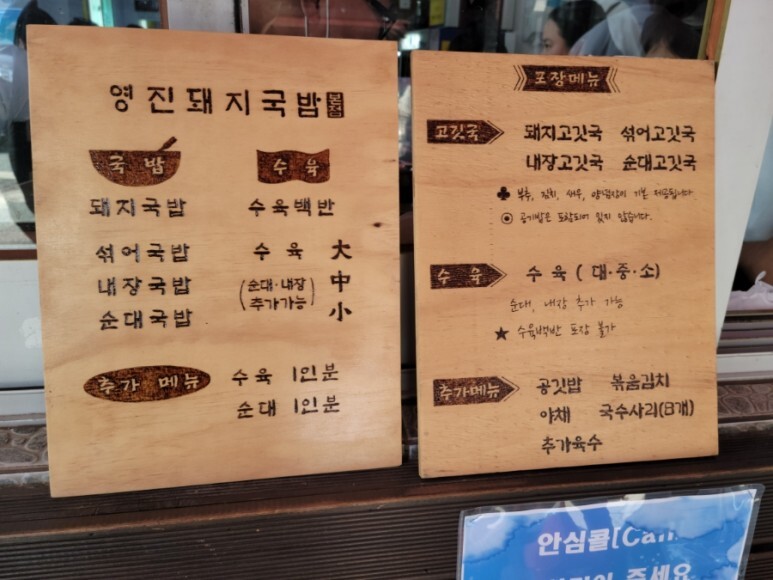 영진돼지국밥 본점
국밥
돼지국밥
섞어국밥
내장국밥
순대국밥
수육
수육백반
수육 大
(순대·내장 추가가능) 中
小
추가 메뉴
수육 1인분
순대 1인분
포장메뉴
고깃국
돼지고깃국 섞어고깃국
내장고깃국 순대고깃국
♣ 부추, 김치, 새우, 양념장이 기본 제공됩니다.
◉ 공기밥은 포함되어 있지 않습니다.
수육
수육 (대·중·소)
순대, 내장 추가 가능
★ 수육백반 포장 불가
추가메뉴
공깃밥 볶음김치
야채 국수사리(8개)
추가육수
안심콜[Call
주세요